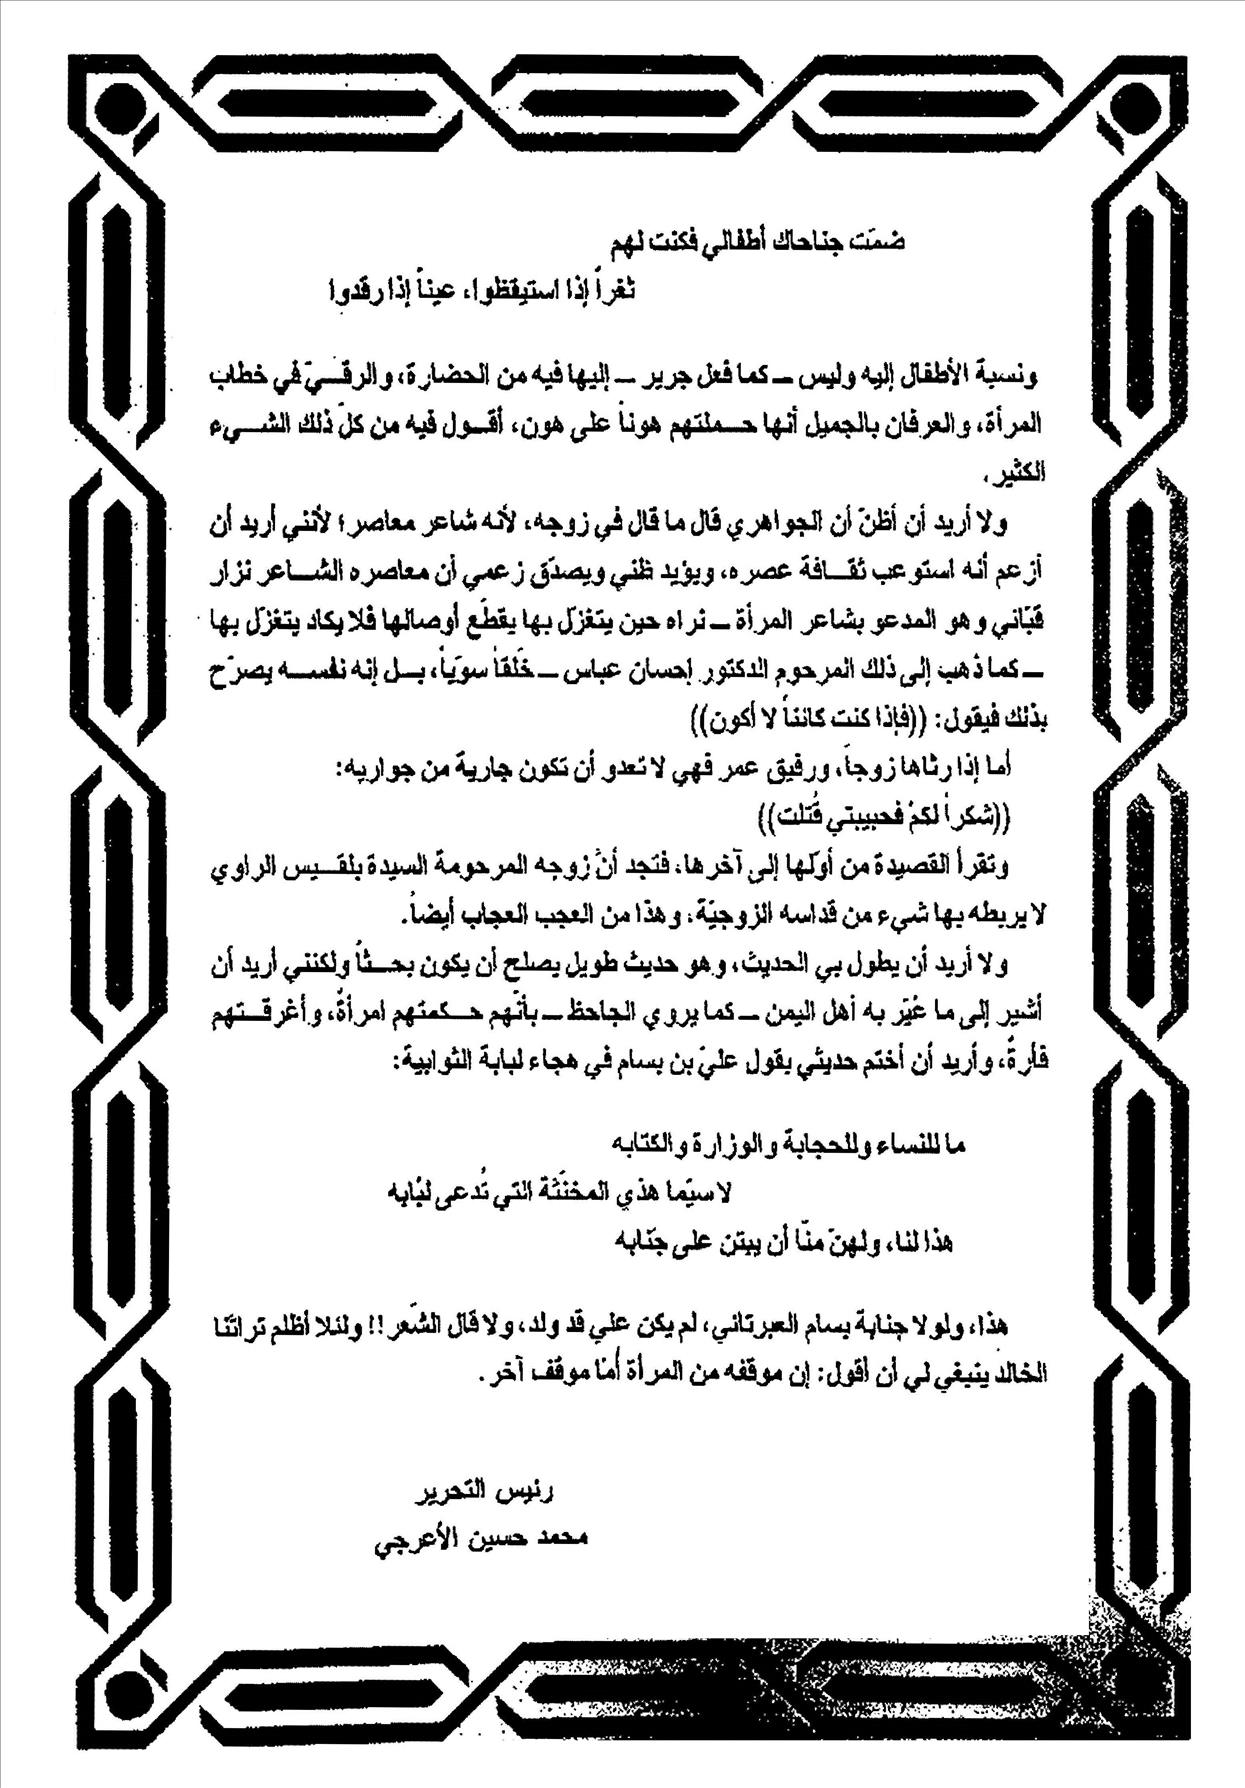 ضمَت جناحاك أطفالي فكنت لهم
ثغراً إذا استيقظوا، عيناً إذا رقدوا
ونسبة الأطفال إليه وليس ــ كما فعل جرير ــ إليها فيه من الحضارة، والرقـيّ في خطاب
المرأة، والعرفان بالجميل أنها حـملتهم هوناً على هون، أقـول فيه من كلّ ذلك الشـيء
الكثير.
ولا أريد أن أظنّ أن الجواهري قال ما قال في زوجه، لأنه شاعر معاصر؛ لأنني أريد أن
أزعم أنه استوعب ثقـافة عصره، ويؤيد ظني ويصدّق زعمي أن معاصره الشـاعر نزار
قبّاني وهو المدعو بشاعر المرأة ــ نراه حين يتغزّل بها يقطّع أوصالها فلا يكاد يتغزّل بها
ــ كما ذهب إلى ذلك المرحوم الدكتور إحسان عباس ــ خَلقاً سويّاً، بـل إنه نفسـه يصرّح
بذلك فيقول: ((فإذا كنت كائناً لا أكون))
أما إذا رثاها زوجاً، ورفيق عمر فهي لا تعدو أن تكون جارية من جواريه:
((شكراً لكمْ فحبيبتي قُتلت))
وتقرأ القصيدة من أوّلها إلى آخرها، فتجد أنّ زوجه المرحومة السيدة بلقـيس الراوي
لا يربطه بها شيء من قداسه الزوجيّة، وهذا من العجب العجاب أيضاً.
ولا أريد أن يطول بي الحديث، وهو حديث طويل يصلح أن يكون بحـثاً ولكنني أريد أن
أشير إلى ما عُيّر به أهل اليمن ــ كما يروي الجاحظ ــ بأنّهم حـكمتهم امرأةٌ، وأغرقـتهم
فأرةٌ، وأريد أن أختم حديثي بقول عليّ بن بسام في هجاء لبابة الثوابية:
ما للنساء وللحجابة والوزارة والكتابه
لا سيّما هذي المخنّثة التي تُدعى لبّابه
هذا لنا، ولهنّ منّا أن يبتن على جنّابه
هذا، ولولا جنابة بسام العبرتاني، لم يكن علي قد ولد، ولا قال الشّعر!! ولئلا أظلم تراثنا
الخالد ينبغي لي أن أقول: إن موقفه من المرأة أمّا موقف آخر.
رئيس التحرير
محمد حسين الأعرجي